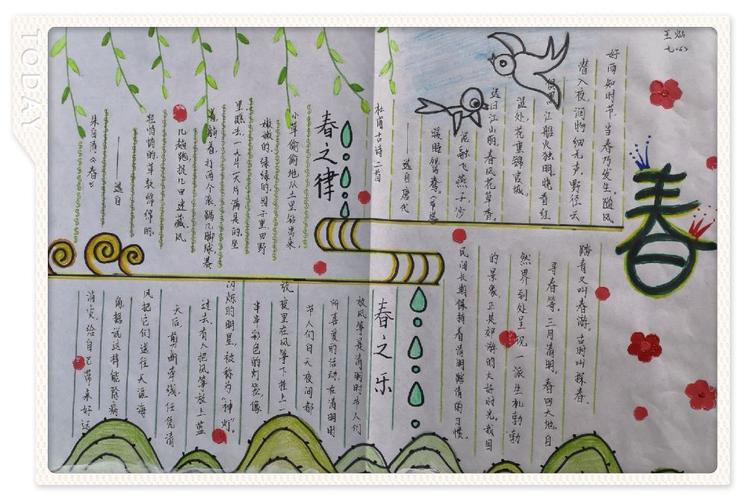 TODAY
春
好雨知时节当春乃发生。随风
潜入夜,润物细无声。野径云
俱黑,江船火独明。晓看红
湿处,花重锦官城。
迟日江山丽,春风花草香。
泥融飞燕子,沙
暖睡鸳鸯。
——选自唐代
杜甫古诗二首
踏青又叫春游。古时叫探春、
寻春等。三月清明,春回大地,自
然界到处呈现一派生机勃勃
的景象,正是郊游的大好时光。我国
民间长期保持着清明踏青的习惯。
春之律
小草偷偷地从土里钻出来,
嫩嫩的,绿绿的。园子里,田野
里,瞧去,一大片一大片满是的。坐
着,躺着,打两个滚,踢几脚球,赛
几趟跑,捉几回迷藏。风
轻悄悄的,草软绵绵的。
——选自
朱自清《春》
春之乐
放风筝是清明时节人们
所喜爱的活动。在清明时
节人们白天夜间都
放夜里在风筝下挂上一
串串彩色的
闪烁的明星,被称为“神灯”。
过去,有人把风筝放上蓝
天后,剪断牵线,任凭清
风把它们送往天涯海
角,据说这样能除病
消灾,给自己带来好运